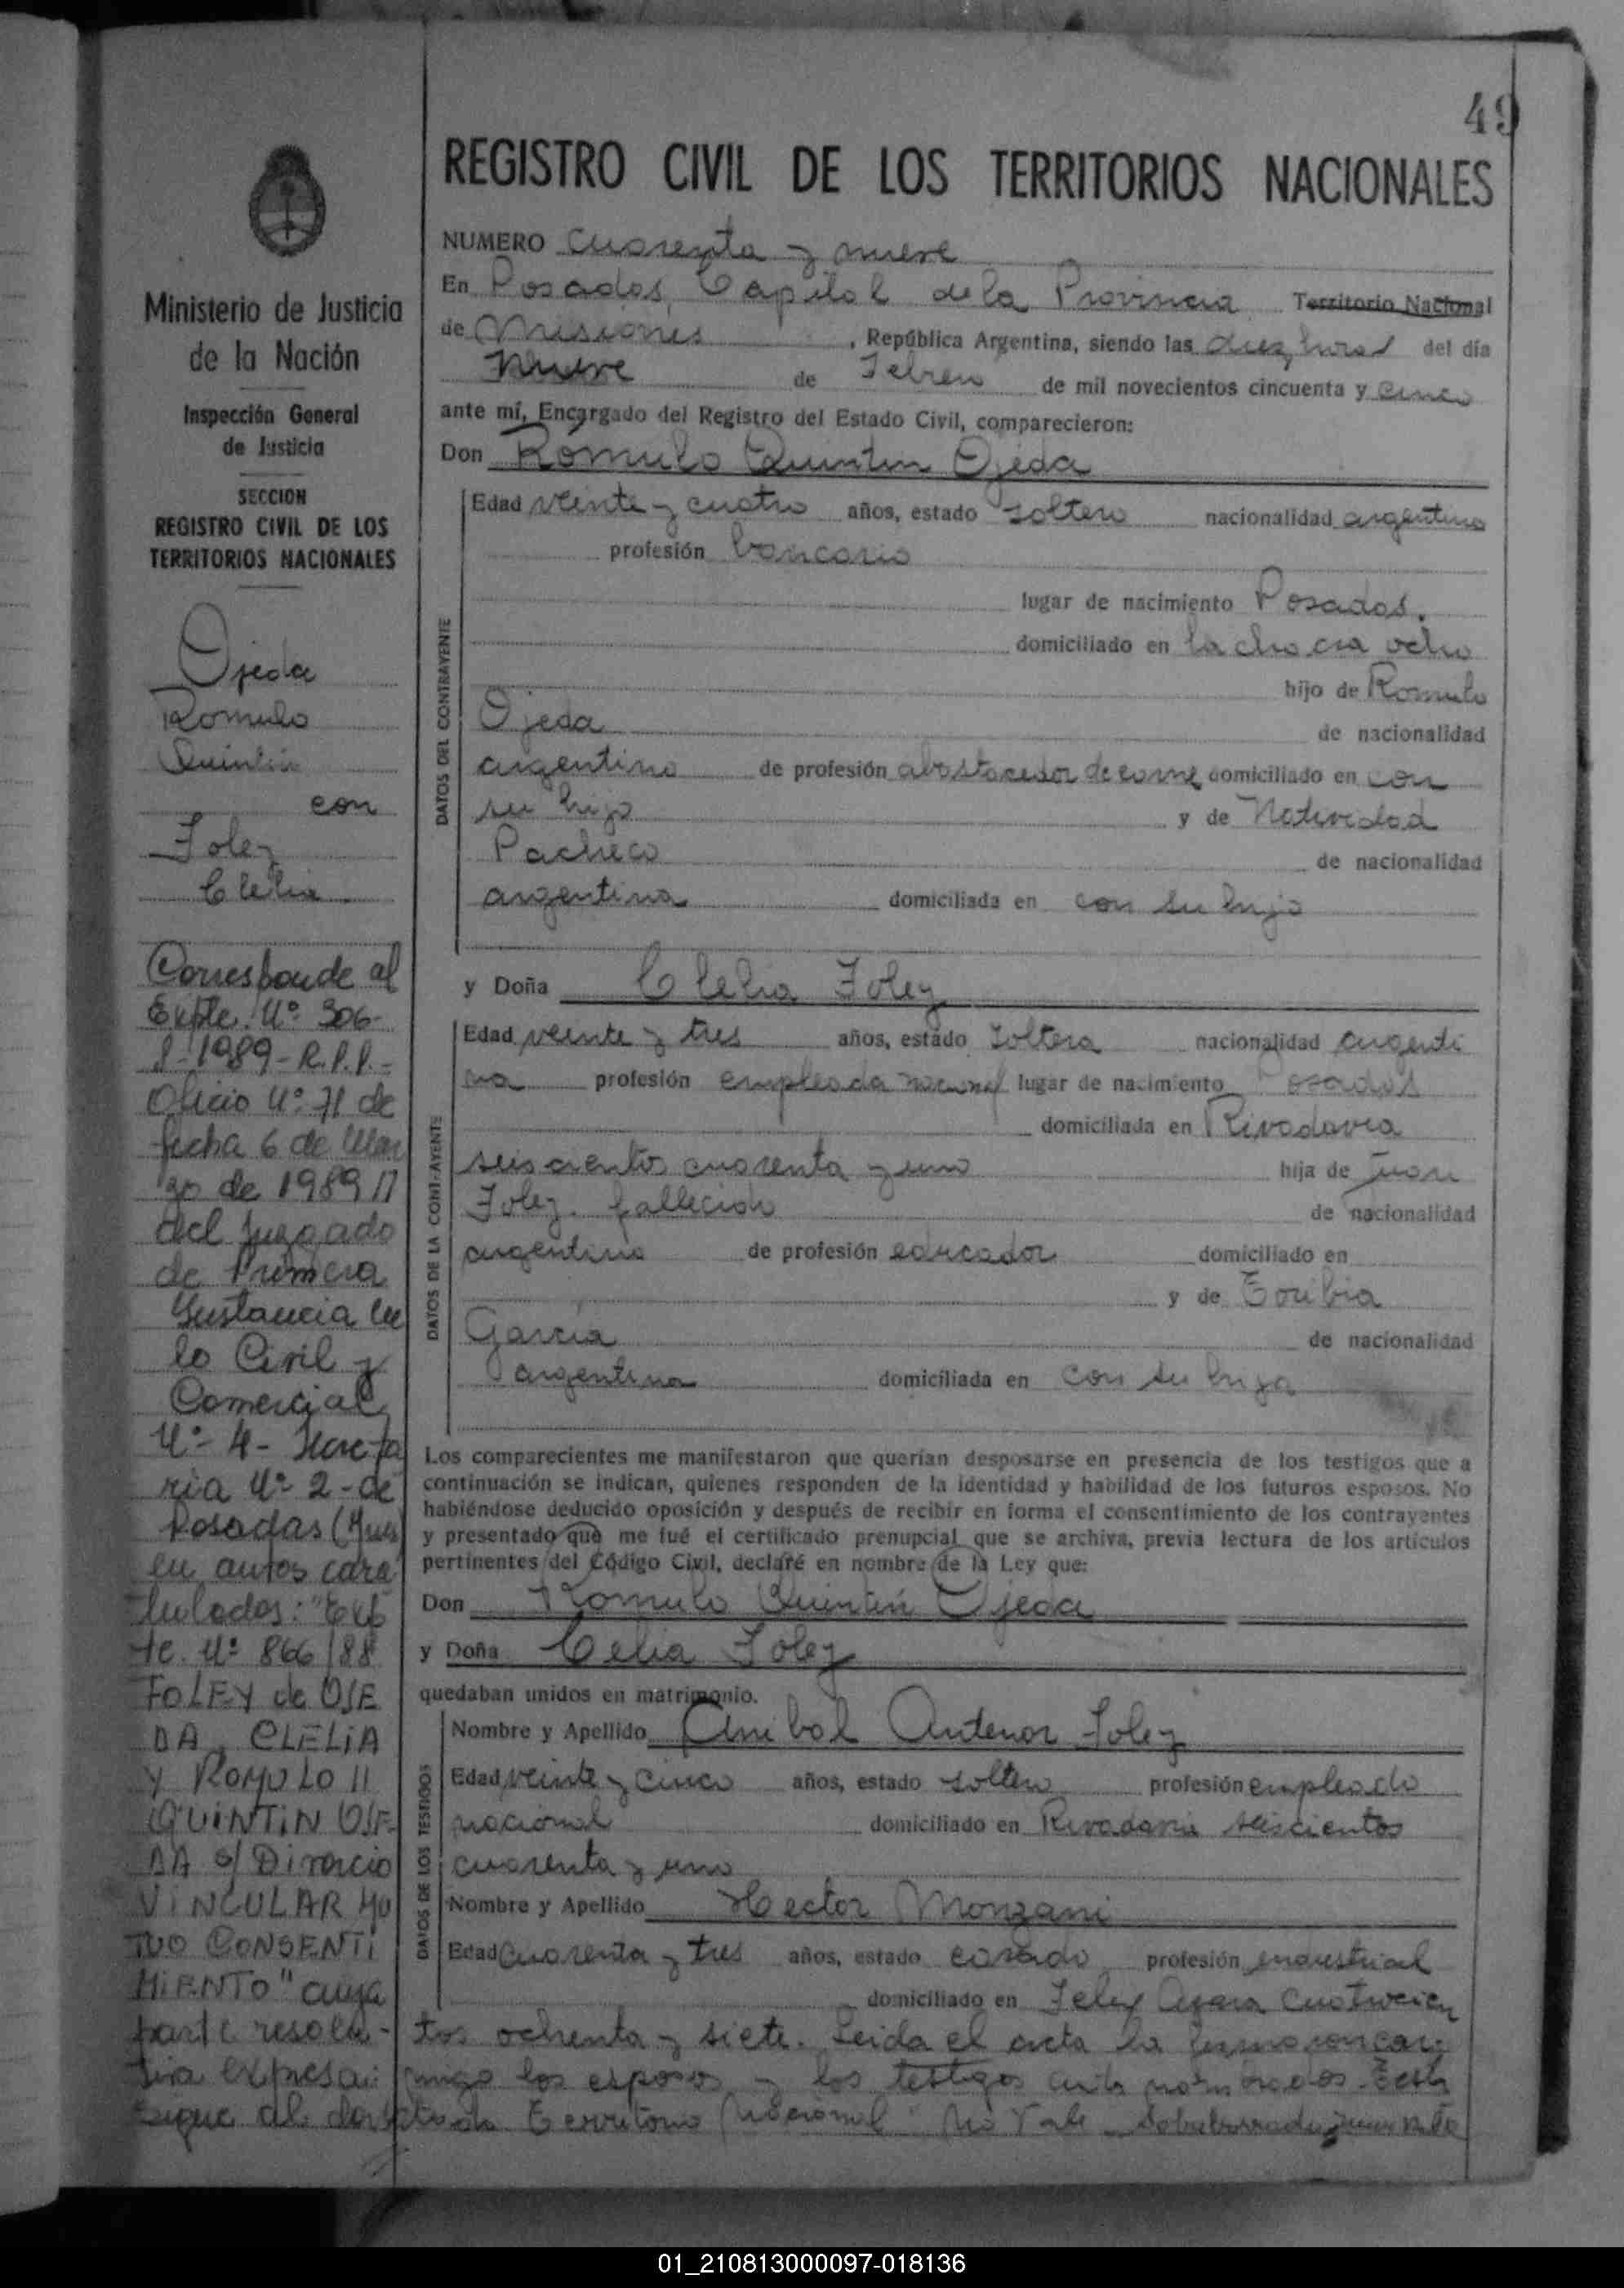 49
REGISTRO CIVIL DE LOS TERRITORIOS NACIONALES
Ministerio de Justicia
de la Nación
Inspección General
de Justicia
SECCION
REGISTRO CIVIL DE LOS
TERRITORIOS NACIONALES
Ojeda
Romulo
Quintin
con
Foley
Clelia
Corresponde al
Expte. Nº 306-
1989-R.P.P.-
Oficio Nº 71 de
fecha 6 de Mar
zo de 1989 //
del Juzgado
de Primera
Instancia en
lo Civil y
Comercial
Nº 4- Secreta
ria Nº 2-de
Posadas (Mnes
en autos cara
tulados: "Exp
te. Nº 866/88
FOLEY de OJE
DA, CLELIA
Y ROMULO //
QUINTIN OJE
DA s/ Divorcio
VINCULAR MU
TUO CONSENTI
MIENTO" cuya
parte resolu-
tiva expresa:
sigue al dor
NUMERO cuarenta y nueve
En Posadas, Capital de la Provincia Territorio Nacional
de Misiones, República Argentina, siendo las diez horas del día
Nueve de Febrero de mil novecientos cincuenta y cinco
ante mí, Encargado del Registro del Estado Civil, comparecieron:
Don Rómulo Quintin Ojeda
DATOS DEL CONTRAYENTE
Edad veinte y cuatro años, estado soltero nacionalidad argentina
profesión bancario
lugar de nacimiento Posadas.
domiciliado en la
hijo de Romulo
Ojeda de nacionalidad
argentina de profesión abastecedor de carne domiciliado en con
su hijo y de Natividad
Pacheco de nacionalidad
argentina domiciliada en con su hijo
y Doña Clelia Foley
DATOS DE LA CONTRAYENTE
Edad veinte y tres años, estado soltera nacionalidad argenti
na profesión empleada nacional lugar de nacimiento Posadas
domiciliada en Rivadavia
seiscientos cuarenta y uno hija de Juan
Foley. fallecido de nacionalidad
argentina de profesión educador domiciliado en
y de Toribia
García de nacionalidad
argentina domiciliada en con su hija
Los comparecientes me manifestaron que querían desposarse en presencia de los testigos que a
continuación se indican, quienes responden de la identidad y habilidad de los futuros esposos. No
habiéndose deducido oposición y después de recibir en forma el consentimiento de los contrayentes
y presentado que me fué el certificado prenupcial que se archiva, previa lectura de los artículos
pertinentes del Código Civil, declaré en nombre de la Ley que:
Don Romulo Quintín Ojeda
y Doña Celia Foley
quedaban unidos en matrimonio.
DATOS DE LOS TESTIGOS
Nombre y Apellido Anibal Antenor Foley
Edad veinte y cinco años, estado soltero profesión empleado
nacional domiciliado en Rivadavia seiscientos
cuarenta y uno
Nombre y Apellido Hector Monzani
Edad cuarenta y tres años, estado casado profesión industrial
domiciliado en Felix Azara cuatrocien
tos ochenta y siete. Leida el acta la firmaron con
migo los esposos y los testigos
Territorio Nacional No Vale
01_210813000097-018136